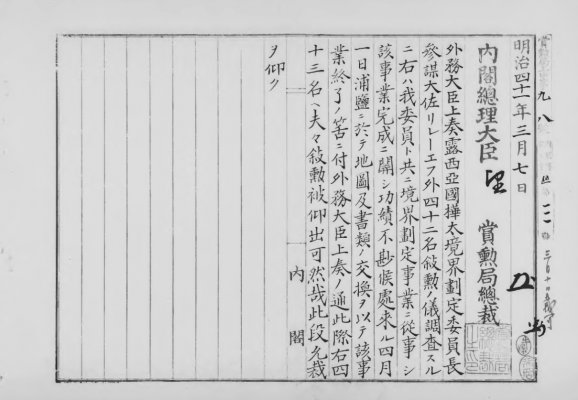 明治四十一年三月七日
內閣總理大臣
賞勲局總裁
外務大臣上奏露西亞國樺太境界劃定委員長
參謀大佐リレーエフ外四十二名敍勲ノ儀調査スル
ニ右ハ我委員ト共ニ境界劃定事業ニ從事シ
該事業完成ニ關シ功績不尠候處來ル四月
一日浦鹽ニ於テ地圖及書類ノ交換ヲ以テ該事
業終了ノ筈ニ付外務大臣上奏ノ通此際右四
十三名ヘ夫々敍勲被仰出可然哉此段允裁
ヲ仰ク
內閣